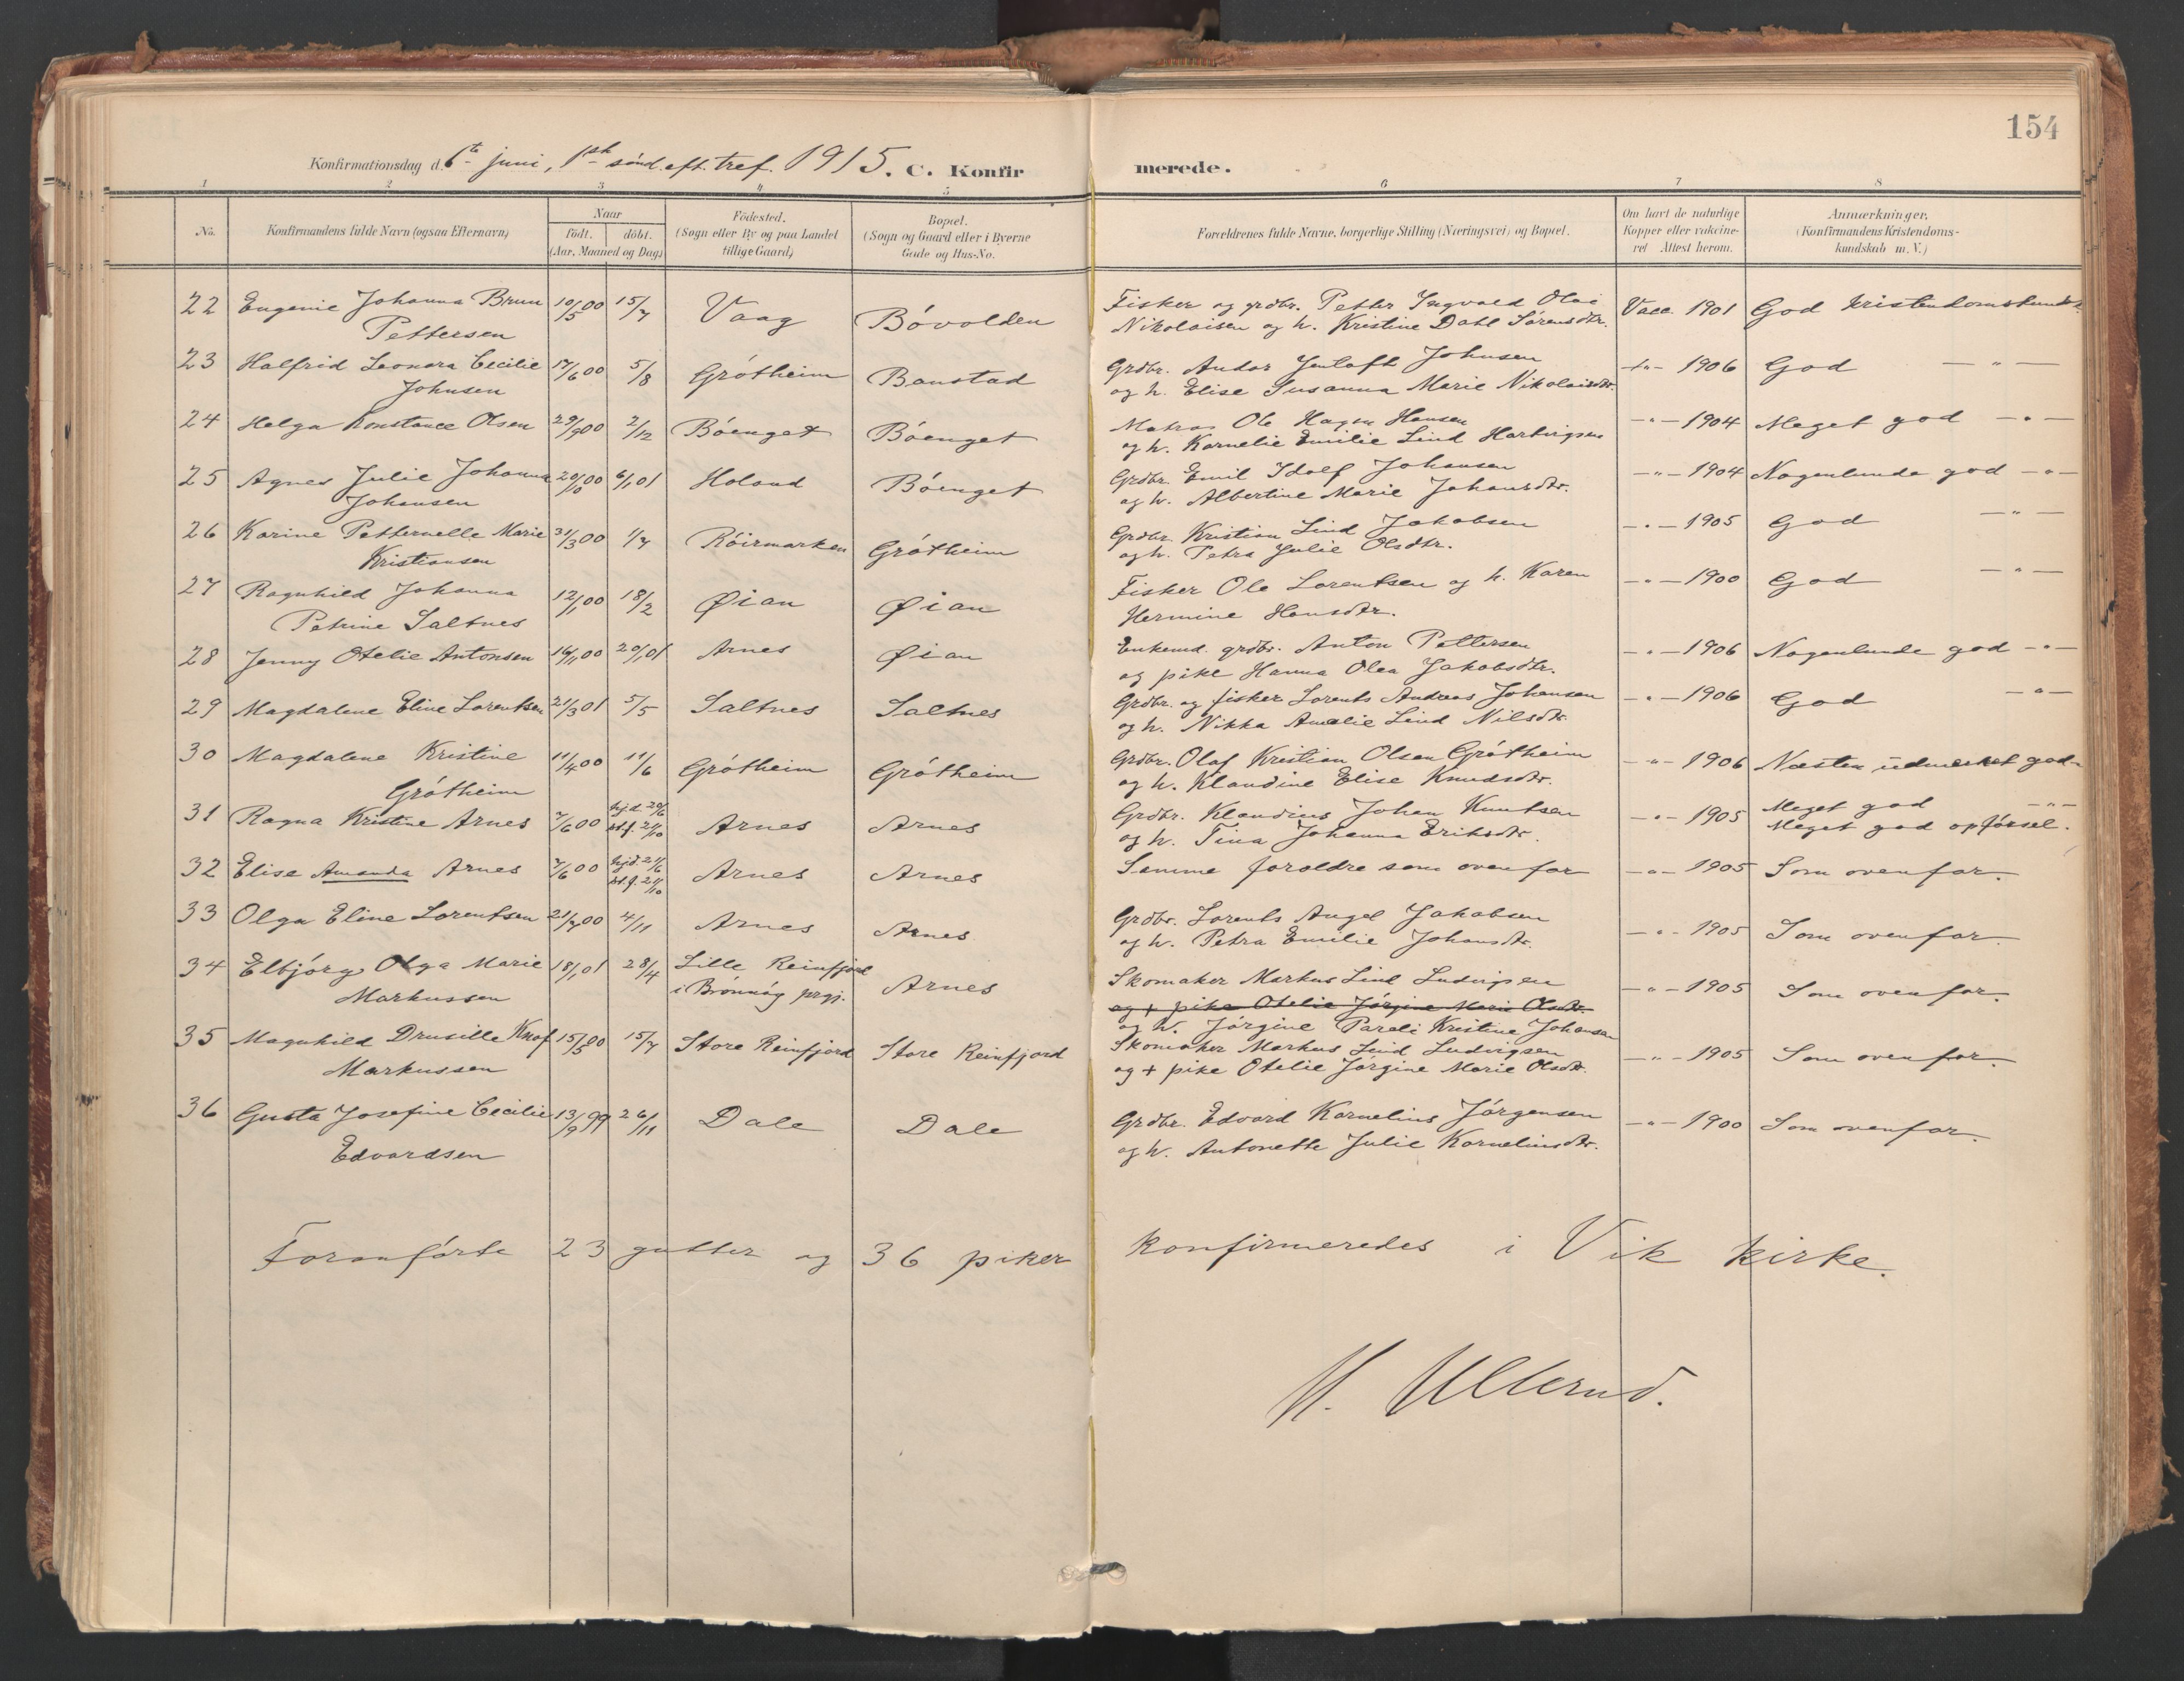 154
Konfirmationsdag d. 6te juni, 1ste sönd. eft. tref. 1915. C. Konfirmerede.
1 2 3 4 5 6 7 8
No. Konfirmandens fulde Navn (ogsaa Efternavn) Naar födt. döbt. (Aar, Maaned og Dag) Födested. (Sogn eller By og paa Landet tillige Gaard) Bopæl. (Sogn og Gaard eller i Byerne Gade og Hus-No. Forældrenes fulde Navne, borgerlige Stilling (Næringsvei) og Bopæl. Om havt de naturlige Kopper eller vakcineret Attest herom. Anmærkninger. (Konfirmandens Kristendomskundskab m. V.)
22 Eugenie Johanna Brun 10/5 00 15/7 Vaag Bóvolden Fisker og grdbr. Petter Ingvald Olai Vacc. 1901 God kristendomskundsk.
Pettersen Nikolaisen og h. Kristine Dahl Sörensdtr.
23 Halfrid Leonora Cecilie 17/6 00 5/8 Grótheim Banstad Grdbr. Andor Jentoft Johnsen -"- 1906 God -"-
Johnsen og h. Elise Susanna Marie Nikolaisdtr.
24 Helga Konstance Olsen 29/9 00 2/12 Bóenget Bóenget Matros Ole Hagen Hansen -"- 1904 Meget god -"-
og h. Kornelie Emilie Lind Hartvigsen
25 Agnes Julie Johanna 20/10 00 6/1 01 Holand Bóenget Grdbr. Emil Idolf Johansen -"- 1904 Nogenlunde god -"-
Johansen og h. Albertine Marie Johansdtr.
26 Karine Petternelle Marie 31/3 00 1/7 Róirmarken Grótheim Grdbr. Kristian Lind Jakobsen -"- 1905 God -"-
Kristiansen og h. Petra Julie Olsdtr.
27 Ragnhild Johanna 12/1 00 18/2 Øian Øian Fisker Ole Lorentsen og h. Karen -"- 1900 God -"-
Petrine Saltnes Hermine Hansdtr.
28 Jenny Otelie Antonsen 16/11 00 20/1 01 Arnes Øian Enkemd. grdbr. Anton Pettersen -"- 1906 Nogenlunde god -"-
og pike Hanna Olea Jakobsdtr.
29 Magdalene Eline Lorentsen 21/3 01 5/5 Saltnes Saltnes Grdbr. og fisker Lorents Andreas Johansen -"- 1906 God -"-
og h. Nikka Amalie Lind Nilsdtr.
30 Magdalene Kristine 11/4 00 11/6 Grótheim Grótheim Grdbr. Olaf Kristian Olsen Grótheim -"- 1906 Næsten udmerket god
Grótheim og h. Klaudine Elise Knudsdtr.
31 Ragna Kristine Arnes 7/6 00 hj.d. 20/6 st.f. 21/10 Arnes Arnes Grdbr. Klaudius Johan Knutsen -"- 1905 Meget god -"-
og h. Tina Johanna Eriksdtr. Meget god opförsel.
32 Elise Amanda Arnes 7/6 00 hj.d. 21/6 st.f. 21/10 Arnes Arnes Samme foreldre som ovenfor -"- 1905 Som ovenfor.
33 Olga Eline Lorentsen 21/7 00 4/11 Arnes Arnes Grdbr. Lorents Angel Jakobsen -"- 1905 Som ovenfor.
og h. Petra Emilie Johansdtr.
34 Elbjórg Olga Marie 18/1 01 28/4 Lille Reinfjord Arnes Skomaker Markus Lind Ludvigsen -"- 1905 Som ovenfor.
Markussen i Brónnóy prgj. og + pike Otelie Jórgine Marie Olsdtr.
og h. Jórgine Pareli Kristine Johansen
35 Magnhild Drusille Knof 15/5 00 15/7 Store Reinfjord Store Reinfjord Skomaker Markus Lind Ludvigsen -"- 1905 Som ovenfor.
Markussen og + pike Otelie Jórgine Marie Olsdtr.
36 Gusta Josefine Cecilie 13/9 99 26/11 Dale Dale Grdbr. Edvard Kornelius Jórgensen -"- 1900 Som ovenfor.
Edvardsen og h. Antonette Julie Korneliusdtr.
Foranfórte 23 gutter og 36 piker konfirmeredes i Vik kirke.
M. Ullerud.